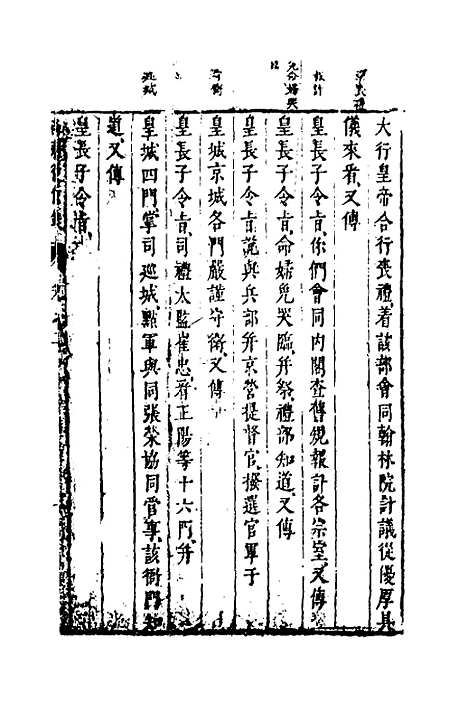 大行皇帝合行喪禮着該部會同翰林院計議從優厚具
儀來看又傳
皇長子令旨你們會同內閣查舊規報計各宗室又傳
皇長子令旨命婦免哭臨并祭禮部知道又傳
皇城京城各門嚴謹守衛又傳
皇長子令旨說與兵部并京營提督官撥選官軍于
皇長子令旨司禮太監崔忠看正陽等十六門并
皇城四門掌司巡城點軍與同張榮協同管事該衙門知
道又傳
皇長子令旨
喪禮
報計
免命婦哭
守衛
巡城